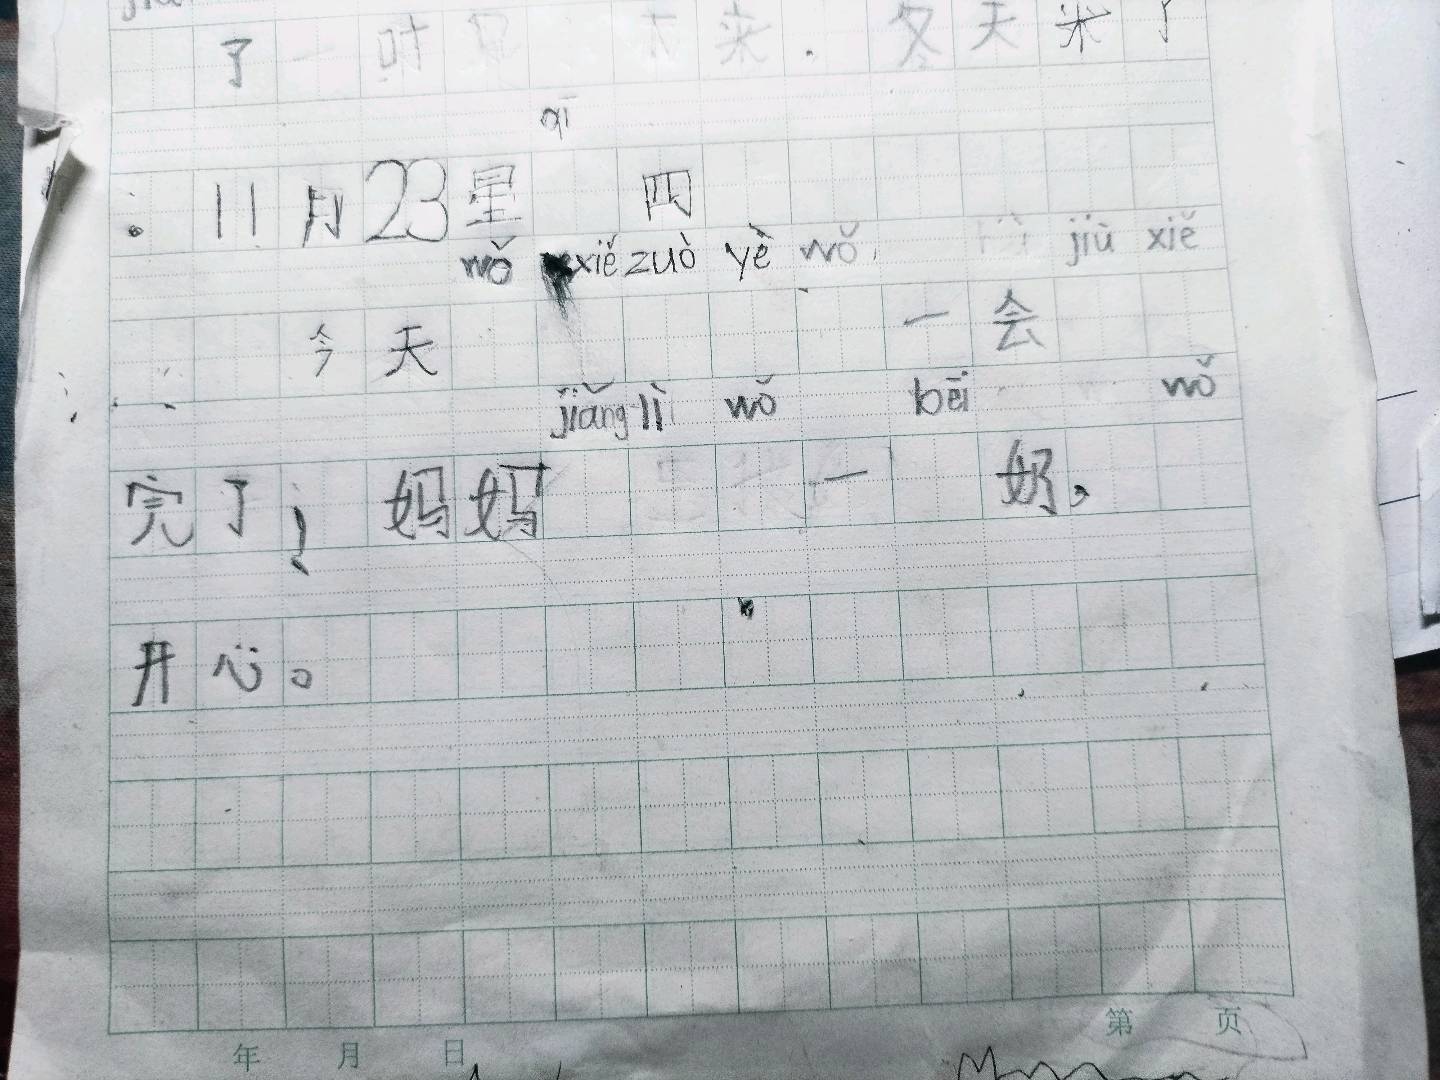 了一时 来.冬天来了
qī
。11月23星 四
wǒ xiě zuò yè wǒ, jiù xiě
今天 一会
jiǎng lì wǒ bēi wǒ
完了, 妈妈 一 奶,
开心。
年 月 日 第 页